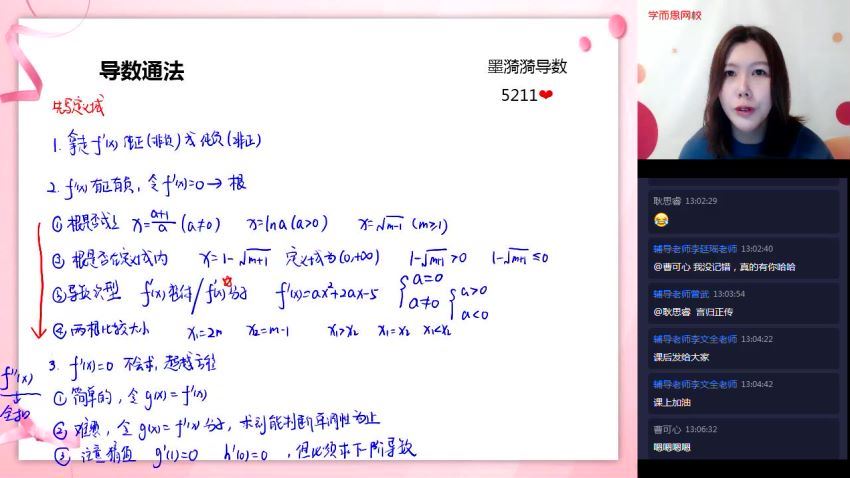 导数通法
墨漪漪导数
5211❤
先写定义域
1. 拿走 f'(x) 恒正(非负) 或 恒负(非正)
2. f'(x) 有正有负, 令 f'(x)=0 → 根
① 根是否成立 x=\frac{a+1}{a} (a≠0) x=ln a (a>0) x=√m-1 (m≥1)
② 根是否在定义域内 x=1-√m+1 定义域为(0,+∞) 1-√m+1>0 1-√m+1≤0
③ 导数类型 f'(x)整体/f'(x)分子 f'(x)=ax²+2ax-5 { a=0 a≠0 { a>0 a<0
④ 两根比较大小 x₁=2m x₂=m-1 x₁>x₂ x₁=x₂ x₁<x₂
3. f'(x)=0 不会求, 超越方程
f''(x)
① 简单的, 令 g(x)=f'(x)
② 难的, 令 g(x)=f'(x)分子, 求到能判断单调性为止
③ 注意猜值 g'(1)=0 h'(0)=0, 但必须求下一阶导数
学而思网校
耿思睿 13:02:29
😂
辅导老师李廷瑶老师 13:02:40
@曹可心 我没记错，真的有你哈哈
辅导老师曾武 13:03:54
@耿思睿 言归正传
辅导老师李文全老师 13:04:22
课后发给大家
辅导老师李文全老师 13:04:42
课上加油
曹可心 13:06:32
嗯嗯嗯嗯